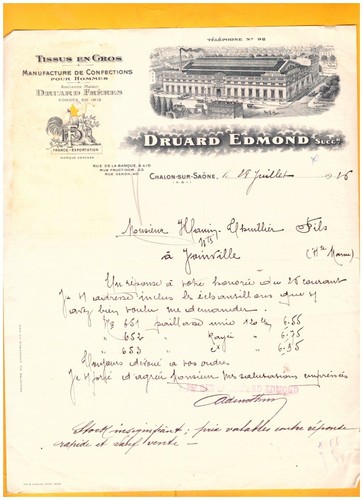 TÉLÉPHONE N° 92
TISSUS EN GROS
MANUFACTURE DE CONFECTIONS
POUR HOMMES
ANCIENNE MAISON
DRUARD FRÈRES
FONDÉE EN 1812
FRANCE-EXPORTATION
MARQUE DÉPOSÉE
DRUARD EDMOND SUCC.
RUE DE LA BANQUE, 8 & 10
RUE FRUCTIDOR, 23
RUE DENON
CHALON-SUR-SAÔNE, le 28 Juillet 1926
Monsieur Fils
à Joinville (Hte Marne)
En réponse à votre honorée du 25 courant
Je vs adresse inclus les échantillons que vs
avez bien voulu me demander.
N° 651 paillasse unie 120 c/m 6.55
" 652 " Rayé " 6.75
" 653 " " 6.95
Toujours dévoué à vos ordres
Je vs prie d'agréer Monsieur mes salutations empressées
EDMOND
Stock insignifiant; prix valables contre réponse
rapide et sauf vente -